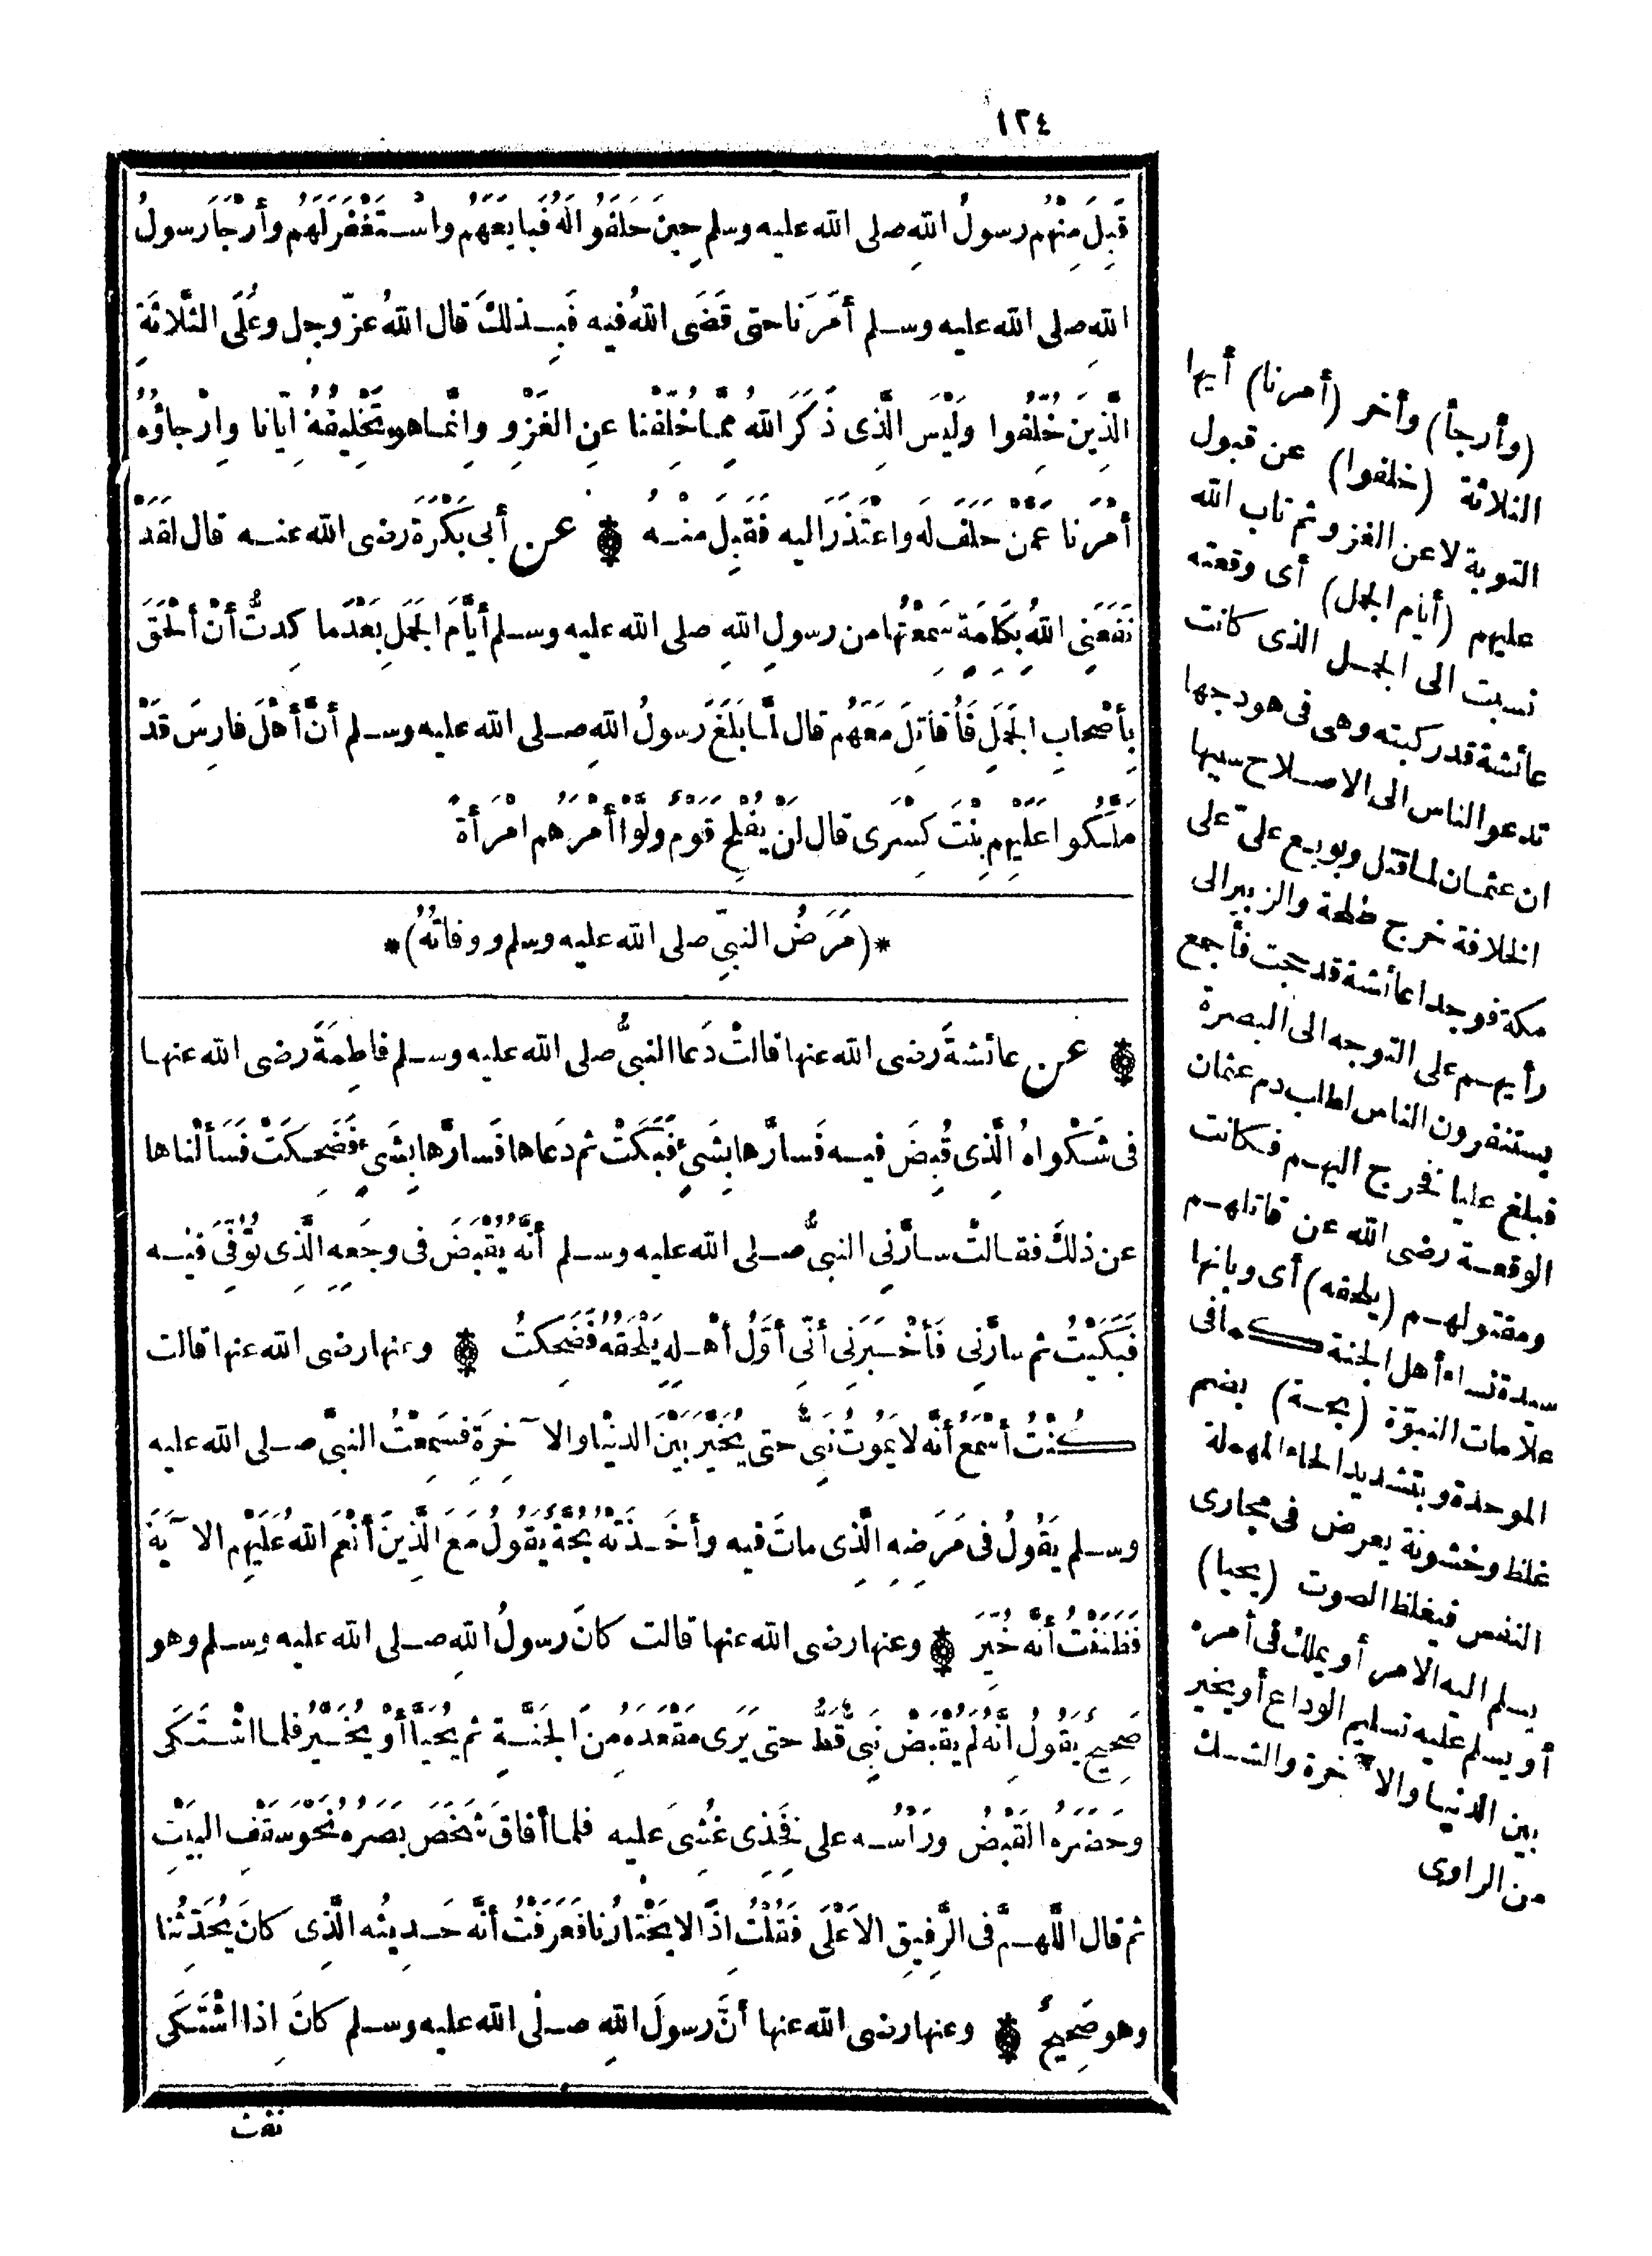 ١٢٤
قَبِلَ مِنْهُم رسولُ اللهِ صلى الله عليه وسلم حِينَ حَلَفُوا لَهُ فَبايَعَهُم واسْتَغْفَرَ لَهُم وأَرْجَأَ رسولُ
اللهِ صلى الله عليه وسلم أَمْرَنَا حتى قَضَى اللهُ فيه فَبِذلكَ قال اللهُ عزّ وجل وعَلَى الثَّلاثَةِ
الَّذِينَ خُلِّفُوا ولَيْسَ الَّذِى ذَكَرَ اللهُ مِمَّا خُلِّفْنا عنِ الغَزْوِ وإِنَّما هو تَخْلِيفُهُ إِيَّانا وإِرْجاؤُهُ
أَمْرَنا عَمَّنْ حَلَفَ لَه واعْتَذَرَ اليه فَقَبِلَ مِنْهُ ۞ عن أبى بَكْرَةَ رضى الله عنه قال لقَدْ
نَفَعَنِى اللهُ بِكَلِمَةٍ سَمِعْتُها من رسولِ اللهِ صلى الله عليه وسلم أَيَّامَ الجَمَلِ بَعْدَ ما كِدتُّ أَنْ أَلْحَقَ
بِأَصْحابِ الجَمَلِ فَأُقاتِلَ مَعَهُم قال لَمَّا بَلَغَ رسولُ اللهِ صلى الله عليه وسلم أَنَّ أَهْلَ فارِسَ قَدْ
مَلَّكُوا عليهِم بِنْتَ كِسْرَى قال لَنْ يُفْلِحَ قَوْمٌ وَلَّوْا أَمْرَهم امْرَأَةً
*(مَرَضُ النبىِّ صلى الله عليه وسلم ووفاتُهُ)*
۞ عن عائشةَ رضى الله عنها قالتْ دَعا النبىُّ صلى الله عليه وسلم فاطِمَةَ رضى الله عنها
فى شَكْواهُ الَّذِى قُبِضَ فيه فَسارَّها بِشَىءٍ فَبَكَتْ ثم دَعاها فَسارَّها بِشَىءٍ فَضَحِكَتْ فَسَأَلْناها
عن ذلكَ فقالتْ سارَّنِى النبىُّ صلى الله عليه وسلم أَنَّه يُقْبَضُ فى وجَعِهِ الَّذِى تُوُفِّىَ فيه
فَبَكَيْتُ ثم سارَّنِى فَأَخْبَرَنِى أَنِّى أَوَّلُ أَهْلِهِ يَلْحَقُهُ فَضَحِكتُ ۞ وعنها رضى الله عنها قالت
كُنْتُ أَسْمَعُ أَنَّه لا يَمُوتُ نَبِىٌّ حتى يُخَيَّرَ بَيْنَ الدنْيا والآخِرَةِ فسَمِعْتُ النبىَّ صلى الله عليه
وسلم يَقُولُ فى مَرَضِهِ الَّذِى ماتَ فيه وأَخَذَتْهُ بُحَّةٌ يَقُولُ مَعَ الَّذِينَ أَنْعَمَ اللهُ عَلَيْهِم الآيَةَ
فَظَنَنْتُ أَنَّه خُيِّرَ ۞ وعنها رضى الله عنها قالت كانَ رسولُ اللهِ صلى الله عليه وسلم وهو
صَحِيحٌ يَقُولُ إِنَّه لَمْ يُقْبَضْ نَبِىٌّ قَطُّ حتى يَرَى مَقْعَدَهُ مِنَ الجَنَّةِ ثم يُحَيَّا أَوْ يُخَيَّرُ فلما اشْتَكَى
وحَضَرَهُ القَبْضُ ورَأْسُه على فَخِذِى غُشِىَ عليه فلما أَفاقَ شَخَصَ بَصَرُه نَحْوَ سَقْفِ البَيْتِ
ثم قال اللَّهمَّ فى الرَّفِيقِ الأَعْلَى فَقُلْتُ إِذًا لا يَخْتارُنا فَعَرَفْتُ أَنَّه حَدِيثُه الَّذِى كانَ يُحَدِّثُنا
وهو صَحِيحٌ ۞ وعنها رضى الله عنها أَنَّ رسولَ اللهِ صلى الله عليه وسلم كانَ إذا اشْتَكَى
نفث
(وأرجأ) وأخر (أمرنا) أيها
الثلاثة (خلفوا) عن قبول
التوبة لا عن الغزو ثم تاب الله
عليهم (أيام الجمل) أى وقعته
نسبت الى الجمل الذى كانت
عائشة قد ركبته وهى فى هودجها
تدعو الناس الى الاصلاح سببها
ان عثمان لما قتل وبويع علىّ على
الخلافة خرج طلحة والزبير الى
مكة فوجدا عائشة قد حجت فأجمع
رأيهم على التوجه الى البصرة
يستنفرون الناس لطلب دم عثمان
فبلغ عليا فخرج اليهم فكانت
الوقعة رضى الله عن قاتلهم
ومقتولهم (يلحقه) أى وبانها
سيدة نساء أهل الجنة كما فى
علامات النبوّة (بحة) بضم
الموحدة وبتشديد الحاء المهملة
غلظ وخشونة يعرض فى مجارى
النفس فيغلظ الصوت (يحيا)
يسلم اليه الامر أو يملك فى أمره
أو يسلم عليه تسليم الوداع أو يخير
بين الدنيا والآخرة والشك
من الراوى